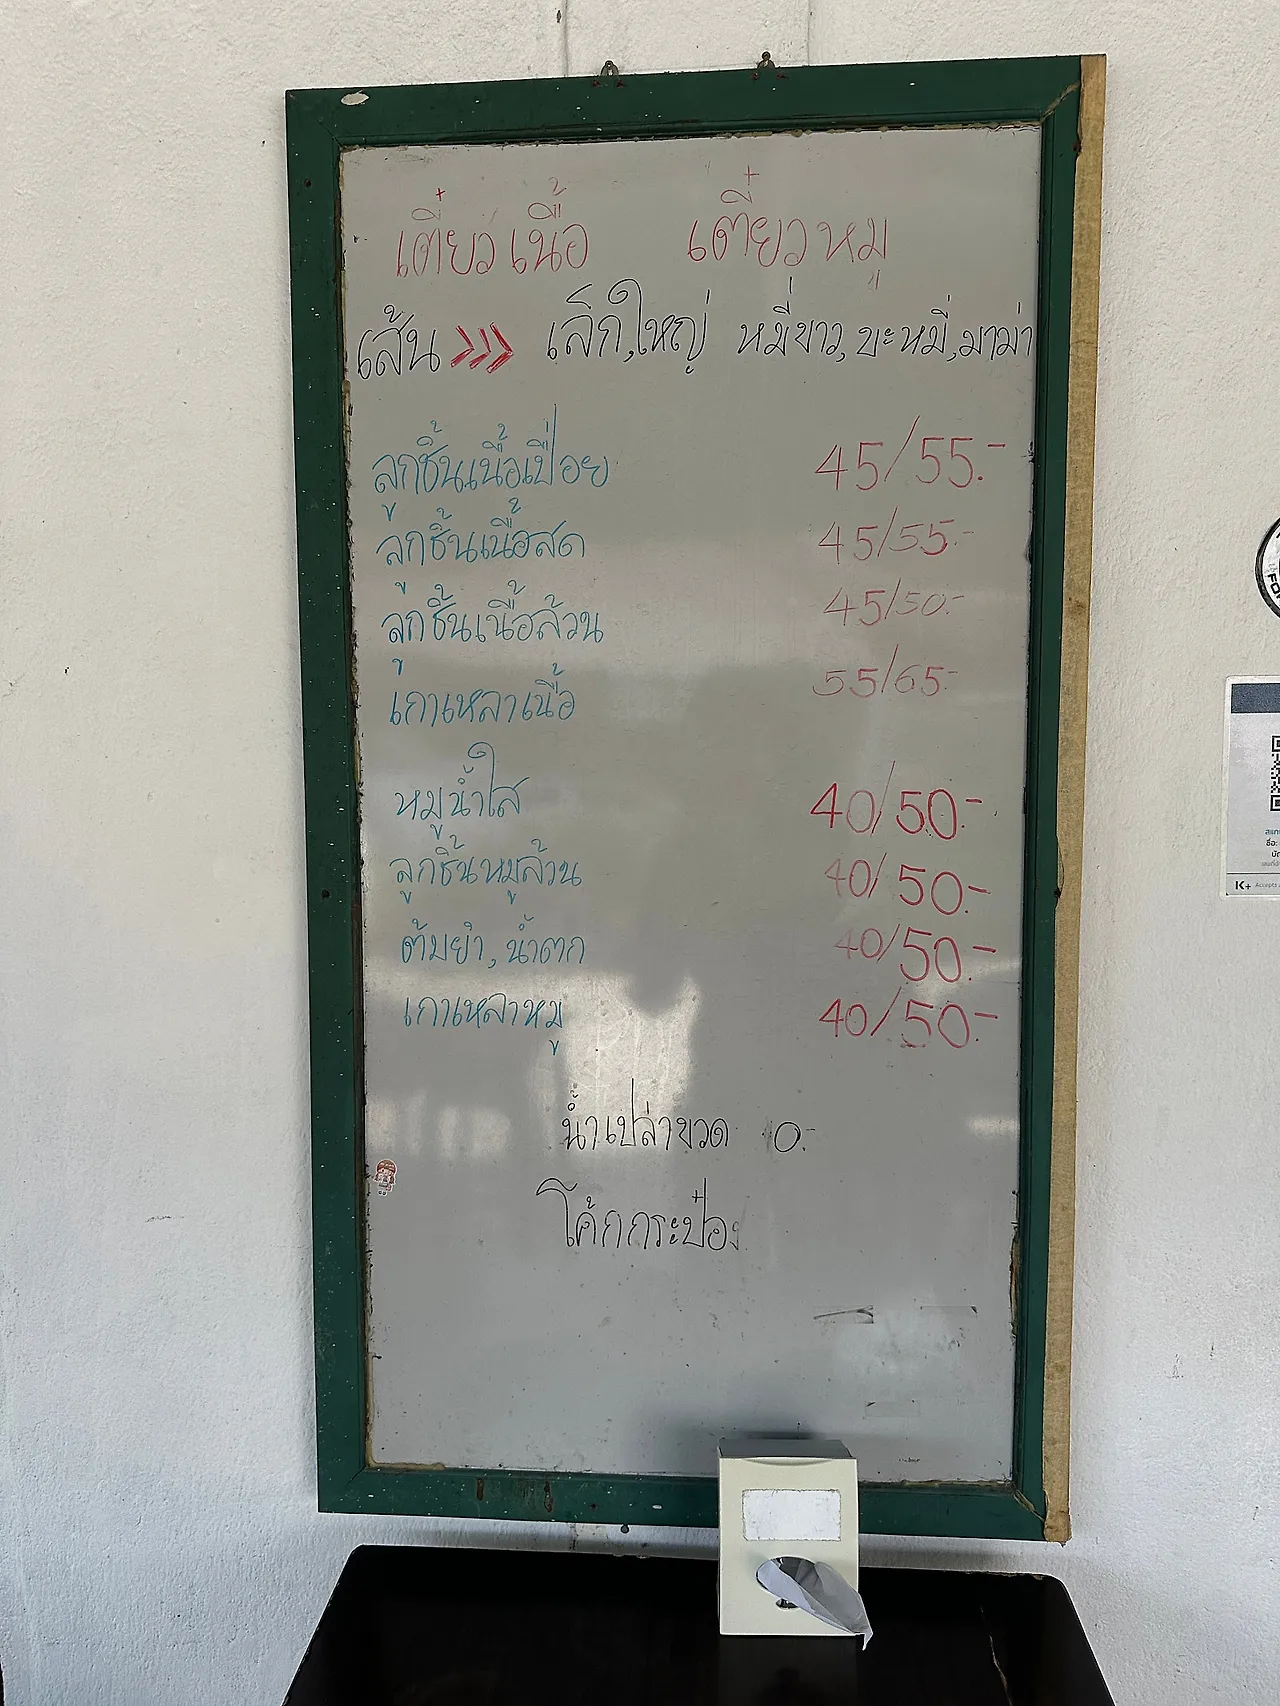 เตี๋ยวเนื้อ เตี๋ยวหมู
เส้น >>> เล็ก,ใหญ่ หมี่ขาว,บะหมี่,มาม่า
ลูกชิ้นเนื้อเปื่อย 45/55.-
ลูกชิ้นเนื้อสด 45/55.-
ลูกชิ้นเนื้อล้วน 45/50.-
เกาเหลาเนื้อ 55/65.-
หมูน้ำใส 40/50.-
ลูกชิ้นหมูล้วน 40/50.-
ต้มยำ, น้ำตก 40/50.-
เกาเหลาหมู 40/50.-
น้ำเปล่าขวด 0.-
โค้กกระป๋อง
K+ Accepts